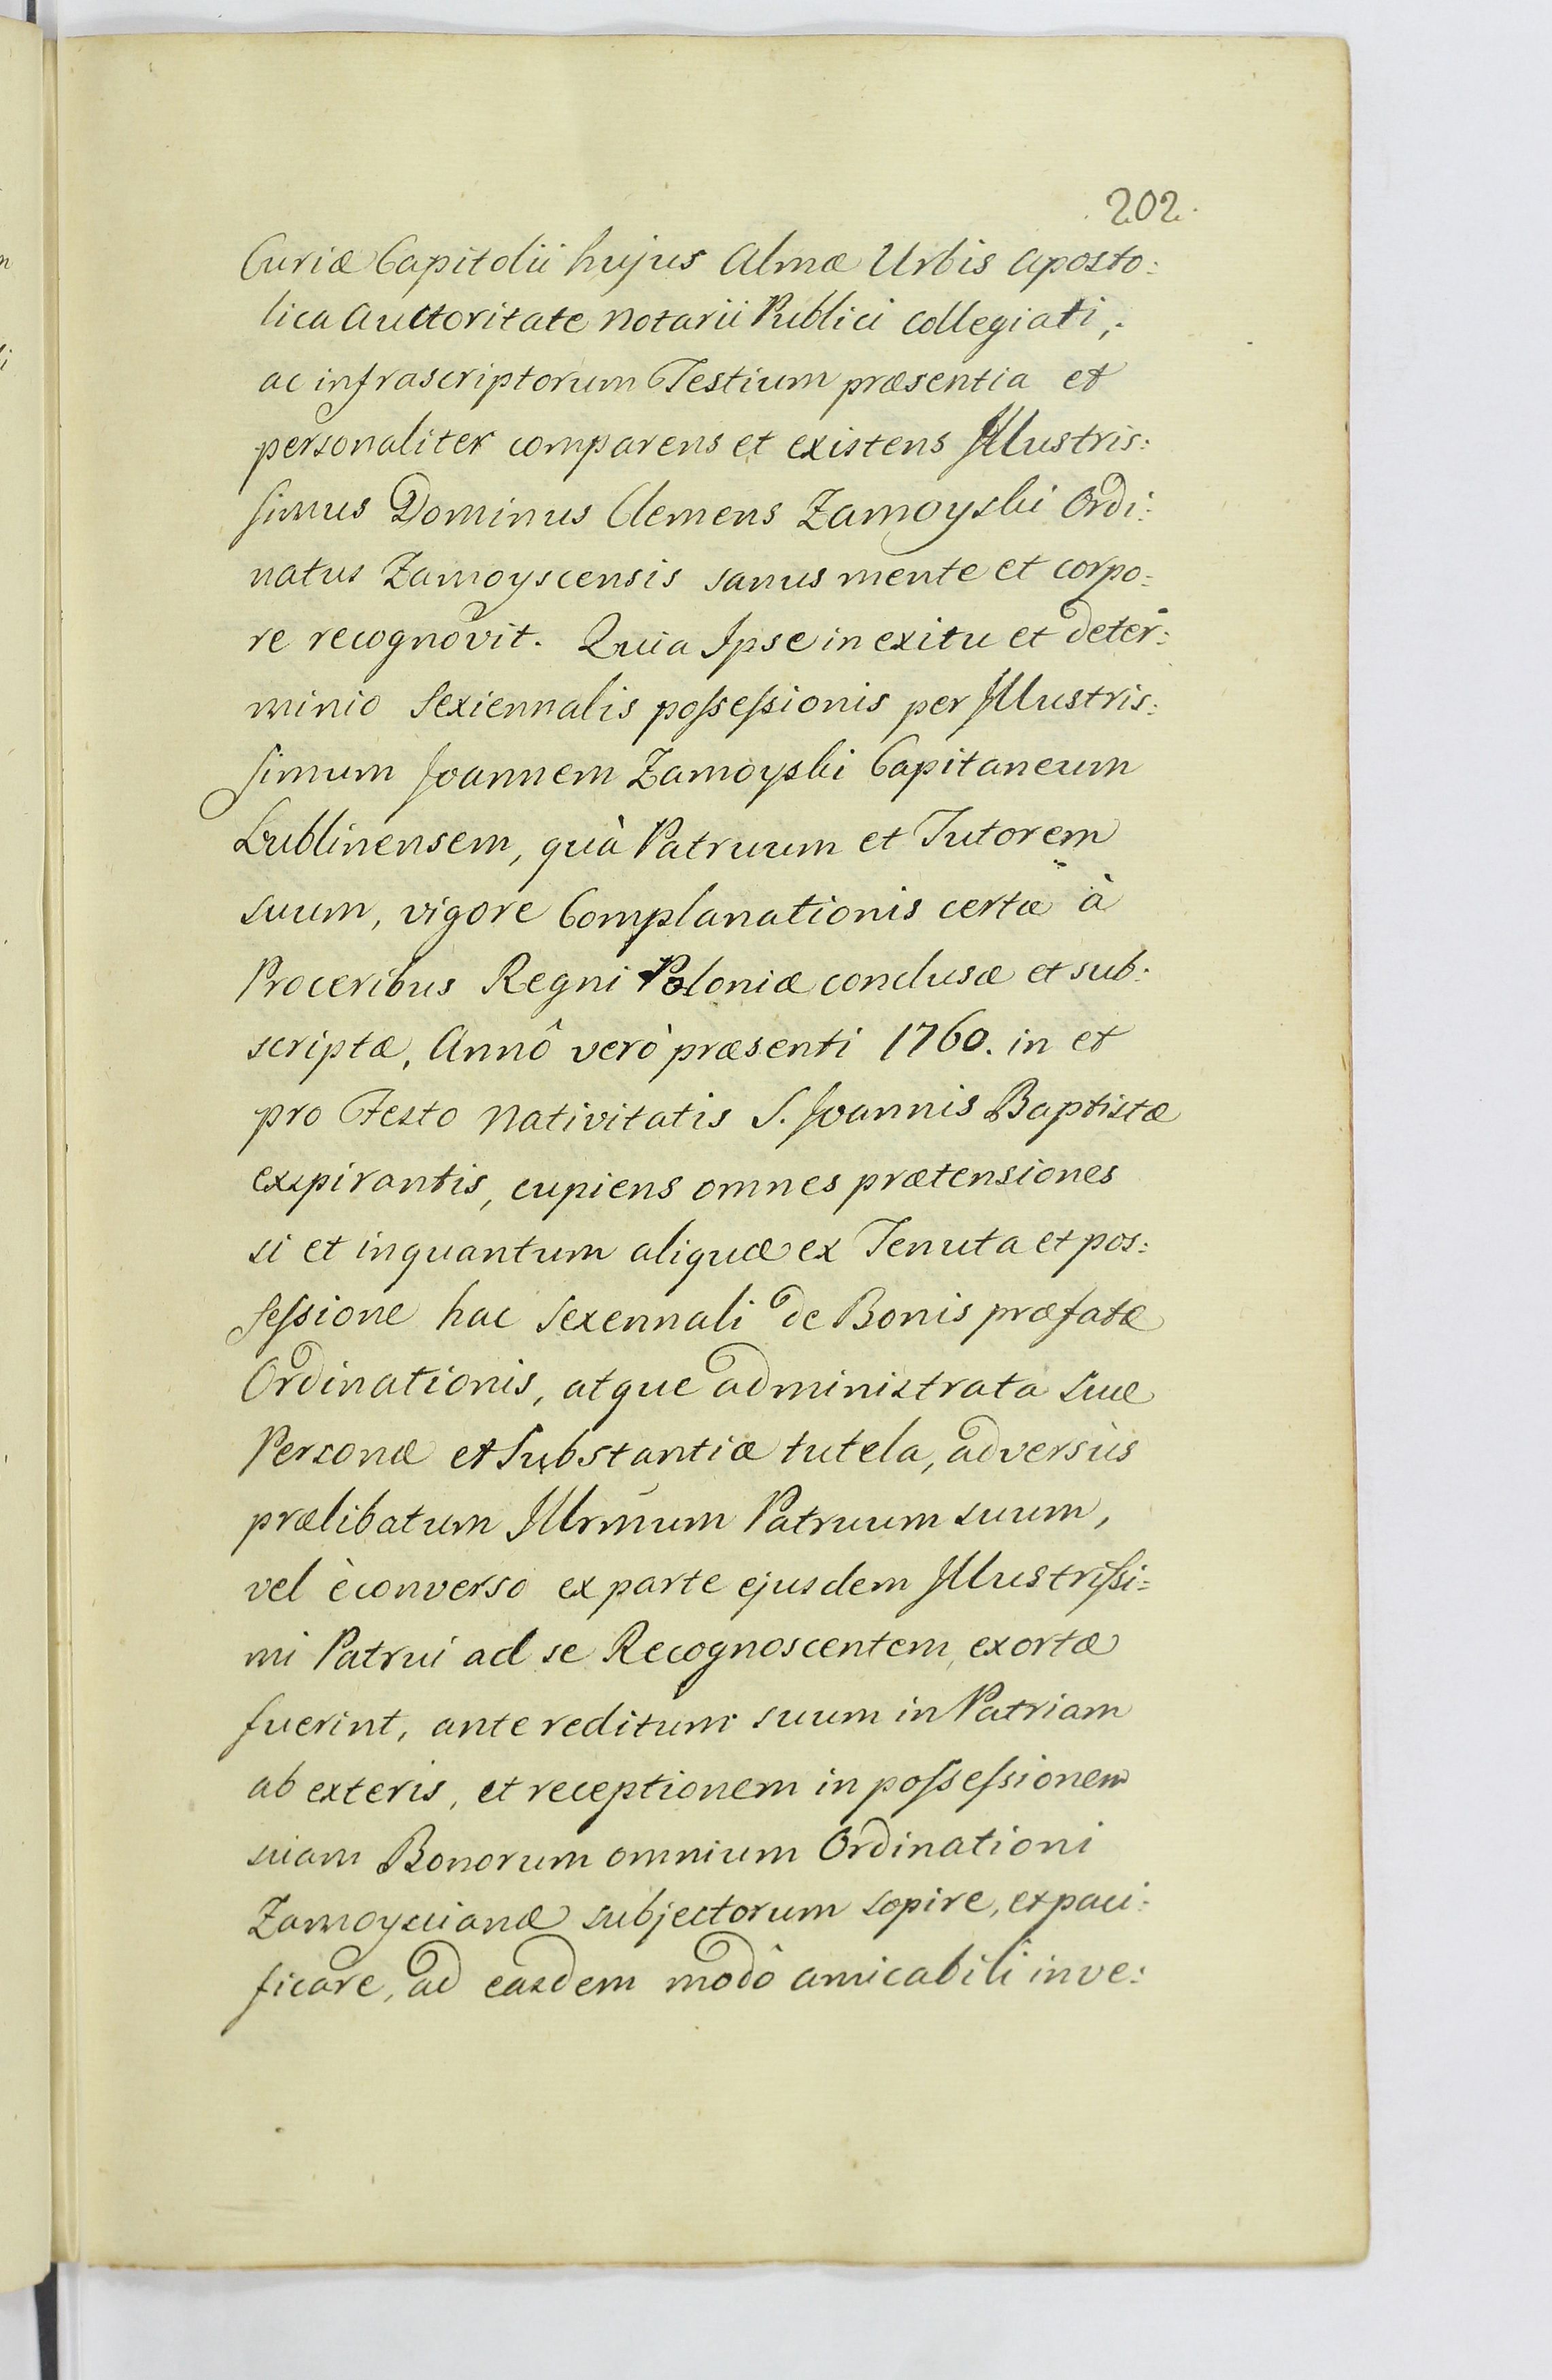 202.
Curiæ Capitolii hujus Almæ Urbis Aposto:
lica Auctoritate Notarii Publici Collegiati,
ac infrascriptorum Testium præsentia et
personaliter comparens et existens Illustris:
simus Dominus Clemens Zamoyski Ordi:
natus Zamoyscensis sanus mente et corpo:
re recognovit. Quia Ipse in exitu et deter:
minio Sexiennalis possessionis per Illustris:
simum Joannem Zamoyski Capitaneum
Lublinensem, quà Patruum et Tutorem
suum, vigore Complanationis certæ à
Proceribus Regni Poloniæ conclusæ et sub:
scriptæ, Annô verò præsenti 1760. in et
pro Festo Nativitatis S. Joannis Baptistæ
exspirantis, cupiens omnes prætensiones
si et inquantum aliquæ ex Tenuta et pos:
sessione hac Sexennali de Bonis præfatæ
Ordinationis, atque administrata suæ
Personæ et Substantiæ tutela, adversùs
prælibatum Illrmum Patruum suum,
vel èconverso ex parte ejusdem Illustrissi:
mi Patrui ad se Recognoscentem, exortæ
fuerint, ante reditum suum in Patriam
ab exteris, et receptionem in possessionem
suam Bonorum omnium Ordinationi
Zamoyscianæ subjectorum sopire, et paci:
ficare, ad easdem modô amicabili inve: